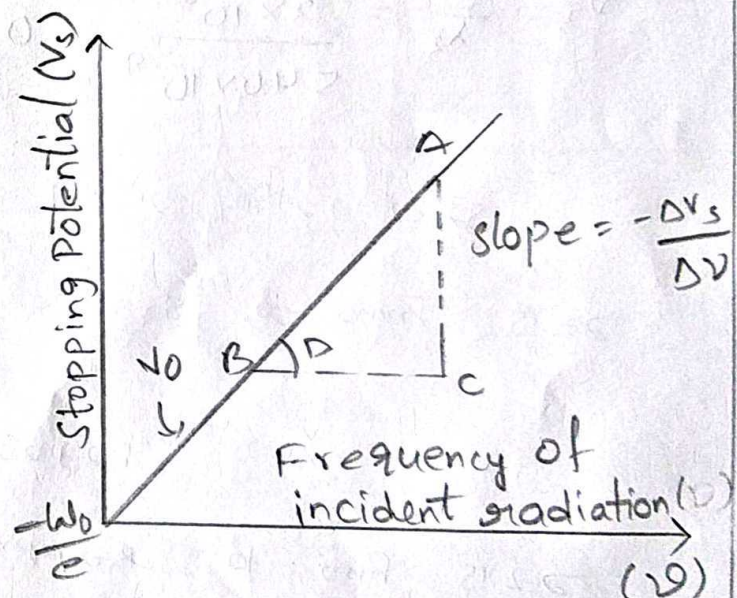 Stopping Potential (Vs)
A
slope = -ΔVs
Δν
B
D
C
νo
Frequency of
incident radiation (ν)
-Wo
e
(ν)